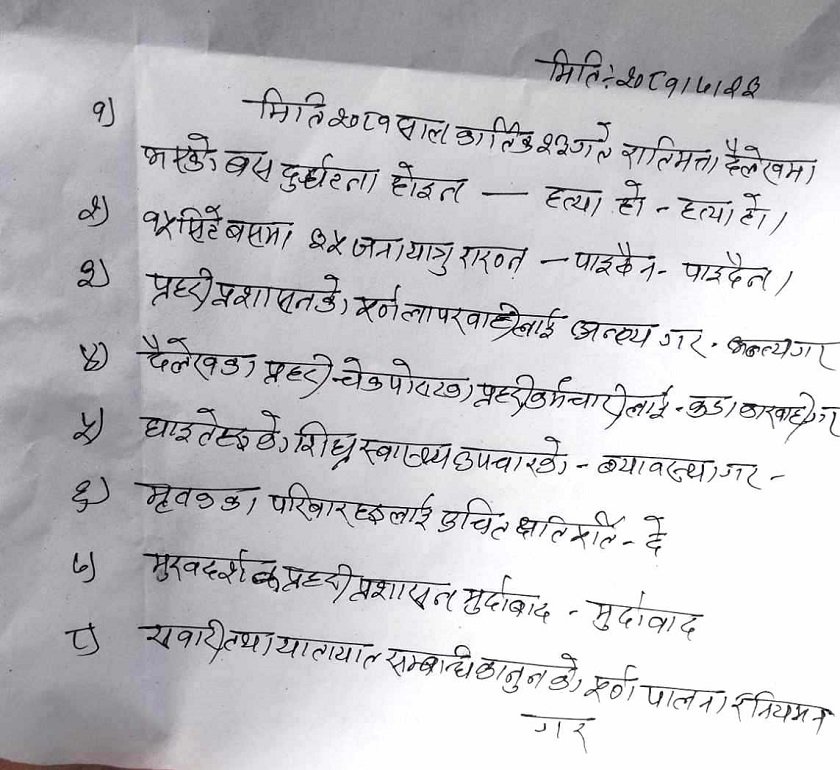 मिति:- २०८१।७।२३
१) मिति २०८१ साल कार्तिक २३ गते रातिमत्ता दैलेखमा
भएको बस दुर्घटता होइन — हत्या हो - हत्या हो।
२) १५ सिटे बसमा ३५ जना यात्रु राख्न - पाइदैन - पाइदैन।
३) प्रहरी प्रशासनको पूर्ण लापरवाहीलाई अन्त्य गर - अन्त्य गर
४) दैलेखका प्रहरी चेकपोस्टका प्रहरी कर्मचारीलाई - कडा कारवाही गर
५) घाइतेहरुको शिघ्र स्वास्थ्य उपचारको - व्यावस्था गर -
६) मृतकका परिवारहरुलाई उचित क्षतिपूर्ति - दे
७) मुखदर्शक प्रहरी प्रशासन मुर्दावाद - मुर्दावाद
८) सवारी तथा यातायात सम्बन्धि कानुनको पूर्ण पालना र नियमन
गर